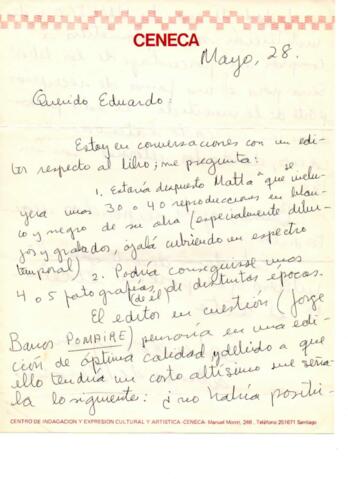 CENECA
Mayo, 28.
Querido Eduardo:
Estoy en conversaciones con un edi-
tor respecto al libro; me pregunta:
1. Estaría dispuesto Matta a que se inclu-
yera unos 30 o 40 reproducciones en blan-
co y negro de su obra (especialmente dibu-
jos y grabados, ojalá cubriendo un espectro
temporal) 2. Podría conseguirse unos
4 o 5 fotografías (de él) de distintas épocas.
El editor en cuestión (Jorge
Barros POMAIRE) pensaría en una edi-
ción de óptima calidad y debido a que
ello tendría un costo altísimo me seña-
la lo siguiente: ¿no habría positi-
CENTRO DE INDAGACION Y EXPRESION CULTURAL Y ARTISTICA -CENECA- Manuel Montt, 246, Teléfono 251671 Santiago